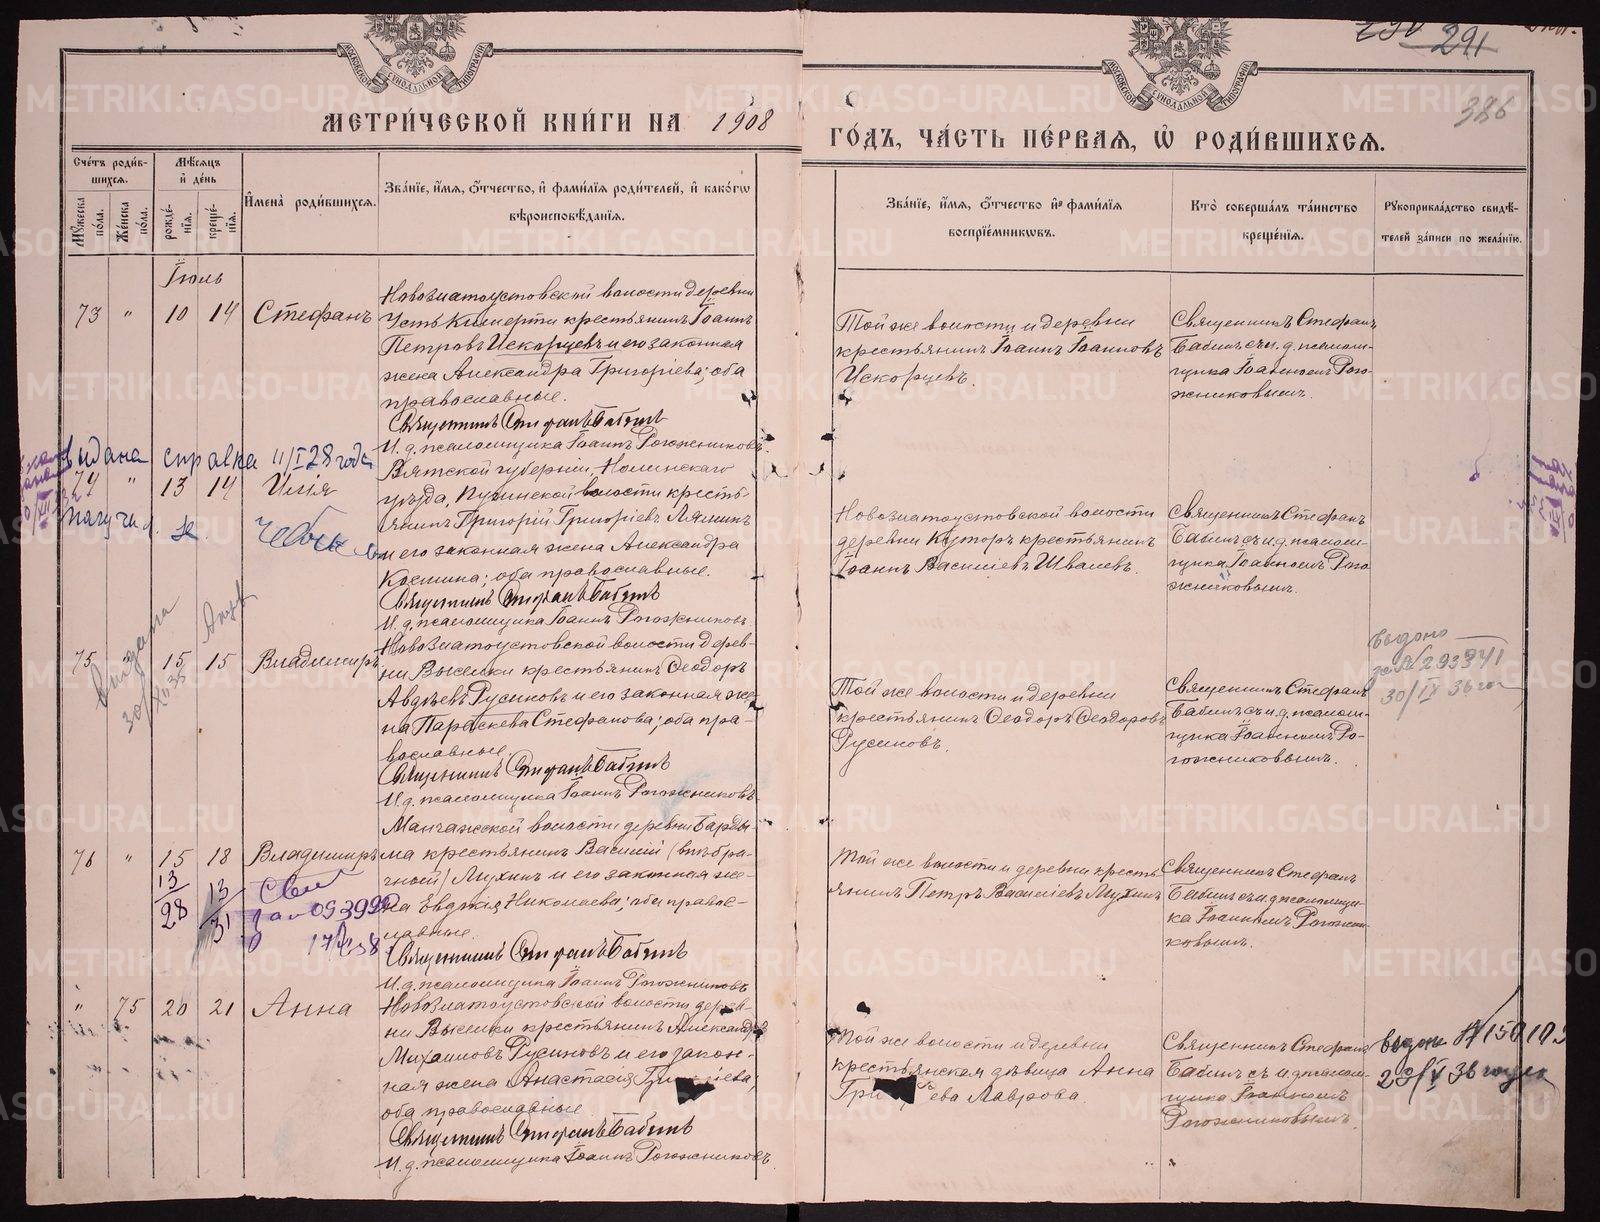 291
386
МОСКОВСКОЙ СѴНОДАЛЬНОЙ ТИПОГРАФІИ
МОСКОВСКОЙ СѴНОДАЛЬНОЙ ТИПОГРАФІИ
МЕТРИ́ЧЕСКОЙ КНИ́ГИ НА 1908 ГО́ДЪ, ЧА́СТЬ ПЕ́РВАЯ, Ѿ РОДИ́ВШИХСѦ.
Сче́тъ роди́в-
шихсѧ.
Мꙋ́жеска по́ла.
Же́нска по́ла.
Мѣ́сѧцъ
и҆ де́нь
рожде́-нїѧ.
креще́-нїѧ.
И҆мена̀ роди́вшихсѧ.
Зва́нїе, и҆́мѧ, ѻ҆́тчество, и҆ фами́лїѧ роди́телей, и҆ како́гѡ
вѣроисповѣ́данїѧ.
Зва́нїе, и҆́мѧ, ѻ҆́тчество и҆ фами́лїѧ
воспрїе́мникѡвъ.
Кто̀ соверша́лъ та́инство
креще́нїѧ.
Рꙋкоприкла́дство свидѣ́-
телей за́писи по жела́нїю.
Іюль
73 " 10 14 Стефанъ
Новозлатоустовской волости деревни
Усть Кишерти крестьянинъ Іоаннъ
Петровъ Искорцевъ и его законная
жена Александра Григоріева; оба
православные.
Священникъ Стефанъ Бабинъ
И. д. псаломщика Іоаннъ Рогожниковъ.
Той же волости и деревни
крестьянинъ Іоаннъ Іоанновъ
Искорцевъ.
Священникъ Стефанъ
Бабинъ съ и. д. псалом-
щика Іоанномъ Рого-
жниковымъ.
Выдана справка 11/I 28 года
74 " 13 14 Илія
Вятской губерніи, Нолинскаго
уѣзда, волости кресть-
янинъ Григорій Григоріевъ Лямин
и его законная жена Александра
Косьмина; оба православные.
Священникъ Стефанъ Бабинъ
И. д. псаломщика Іоаннъ Рогожниковъ
Новозлатоустовской волости
деревни Куторъ крестьянинъ
Іоаннъ Василіевъ Швалевъ.
Священникъ Стефанъ
Бабинъ съ и. д. псалом-
щика Іоанномъ Рого
жниковымъ.
Выдана
75 " 15 15 Владимиръ
Новозлатоустовской волости дерев-
ни Выселки крестьянинъ Ѳеодоръ
Авдѣевъ Русиновъ и его законная же-
на Параскева Стефанова; оба пра-
вославные.
Священникъ Стефанъ Бабинъ
И. д. псаломщика Іоаннъ Рогожниковъ.
Той же волости и деревни
крестьянинъ Ѳеодоръ Ѳеодоровъ
Русиновъ.
Священникъ Стефанъ
Бабинъ съ и. д. псалом-
щика Іоанномъ Ро-
гожниковымъ.
выдано
30/IV 36 го
76 " 15 18 Владимиръ
Манчажской волости деревни Барды-
ма крестьянинъ Василій (внѣбра-
чный) Мухинъ и его законная же-
на Евдокія Николаева; оба право-
славные.
Священникъ Стефанъ Бабинъ
И. д. псаломщика Іоаннъ Рогожниковъ
Той же волости и деревни кресть
янинъ Петръ Василіевъ Мухинъ
Священникъ Стефанъ
Бабинъ съ и. д. псаломщи-
ка Іоанномъ Рогожни-
ковымъ.
13/28 13/31
" 75 20 21 Анна
Новозлатоустовской волости дерев-
ни Выселки крестьянинъ Александръ
Михаиловъ Русиновъ и его закон-
ная жена Анастасія
оба православные.
Священникъ Стефанъ Бабинъ
И. д. псаломщика Іоаннъ Рогожниковъ.
Той же волости и деревни
крестьянская дѣвица Анна
Лаврова.
Священникъ Стефанъ
Бабинъ съ и. д. псалом-
щика Іоанномъ
Рогожниковымъ.
выдано
METRIKI.GASO-URAL.RU